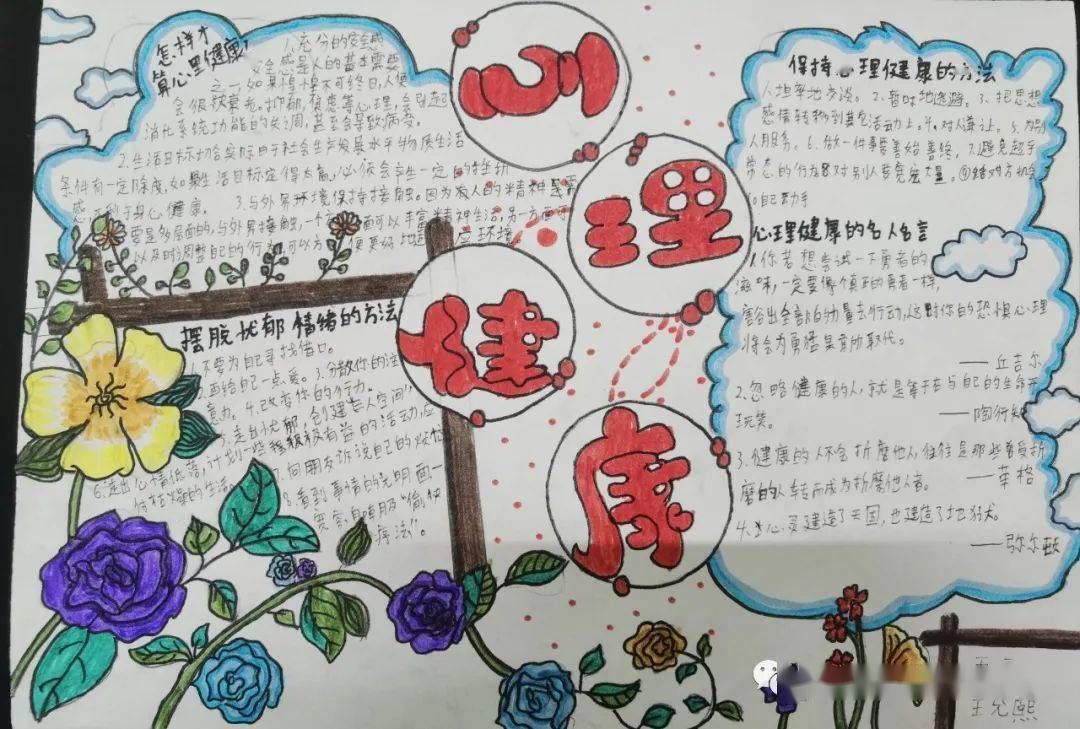 心
理
健
康
怎样才
算心里健康?
1、充分的安全感
安全感是人的基本需要
之一,如果惶惶不可终日,人便
会很快衰老。抑郁、焦虑等心理,会引起
消化系统功能的失调,甚至会导致病变。
2.生活目标切合实际由于社会生产发展水平物质生活
条件有一定限度,如果生活目标定得太高,必然会产生一定的挫折
感,不利于身心健康。 3.与外界环境保持接触。因为人的精神是
要是多层面的,与外界接触,一个方面可以丰富精神生活,另一方面可
以及时调整自己的行为,可以方便更好地适应环境。
摆脱忧郁情绪的方法
1.不要为自己寻找借口。
2.再给自己一点爱。3.分散你的注
意力。4.改变你的行为。
5.走出忧郁,创建“无人空间”
6.走出心情低落,计划一些积极有益的活动,应
付枯燥的生活。
7.向朋友诉说自己的烦恼
8.看到事情的光明面一
病法”。
保持心理健康的方法
人坦率地交谈。2、暂时地逃避。3、把思想
感情转移到其它活动上。4、对人谦让。5、为别
人服务。6、做一件事善始善终,7、避免超乎
常态的行为8对别人要宽宏大量。⑨给对方机会
10自己动手
心理健康的名人名言
1、你若想尝试一下勇者的
滋味,一定要像个真正的勇者一样,
豁出全部的力量去行动,这时你的恐惧心理
将会为勇猛果敢所取代。
——丘吉尔
2.忽略健康的人,就是等于与自己的生命开
玩笑。 ——陶行知
3.健康的人不会折磨他人,往往是那些曾受折
磨的人转而成为折磨他人者。 ——荣格
4.心灵建造了天国,也建造了地狱。
——弥尔顿
王允熙